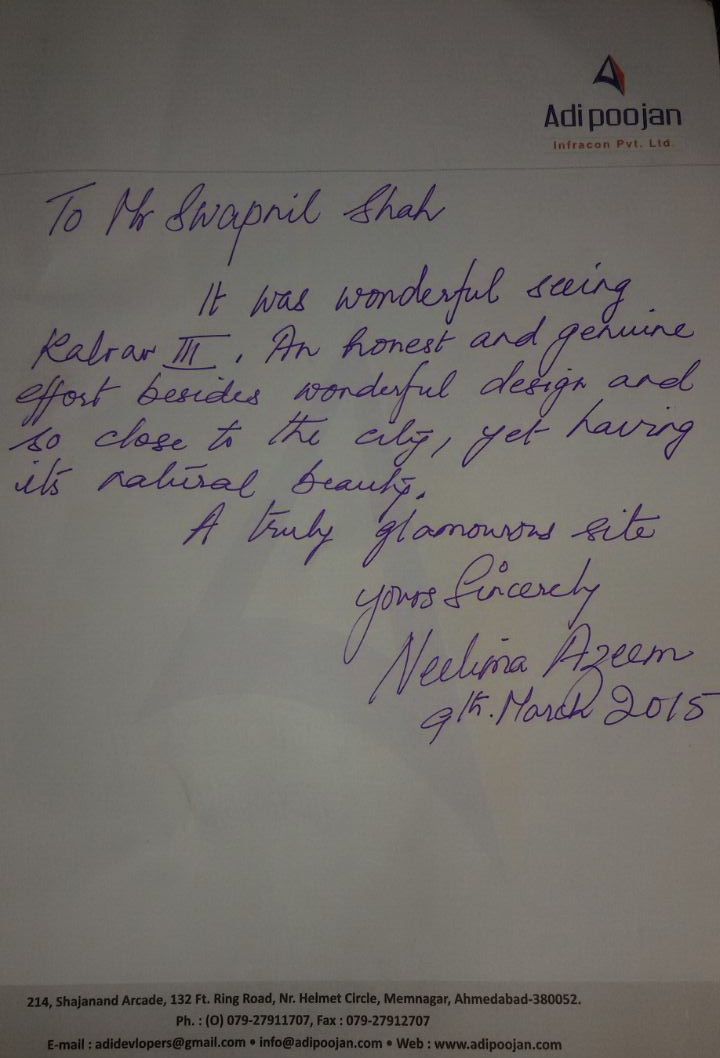 Adi poojan
Infracon Pvt. Ltd.
To Mr Swapnil Shah
It was wonderful seeing
Kalrav III. An honest and genuine
effort besides wonderful design and
so close to the city, yet having
its natural beauty.
A truly glamourous site
Yours Sincerely
Neelima Azeem
9th. March 2015
214, Shajanand Arcade, 132 Ft. Ring Road, Nr. Helmet Circle, Memnagar, Ahmedabad-380052.
Ph. : (O) 079-27911707, Fax : 079-27912707
E-mail : adidevlopers@gmail.com • info@adipoojan.com • Web : www.adipoojan.com